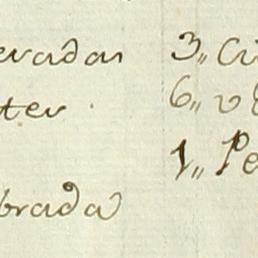 eradas 3,, Ci
ter. 6,, v
1,, Pe
brada